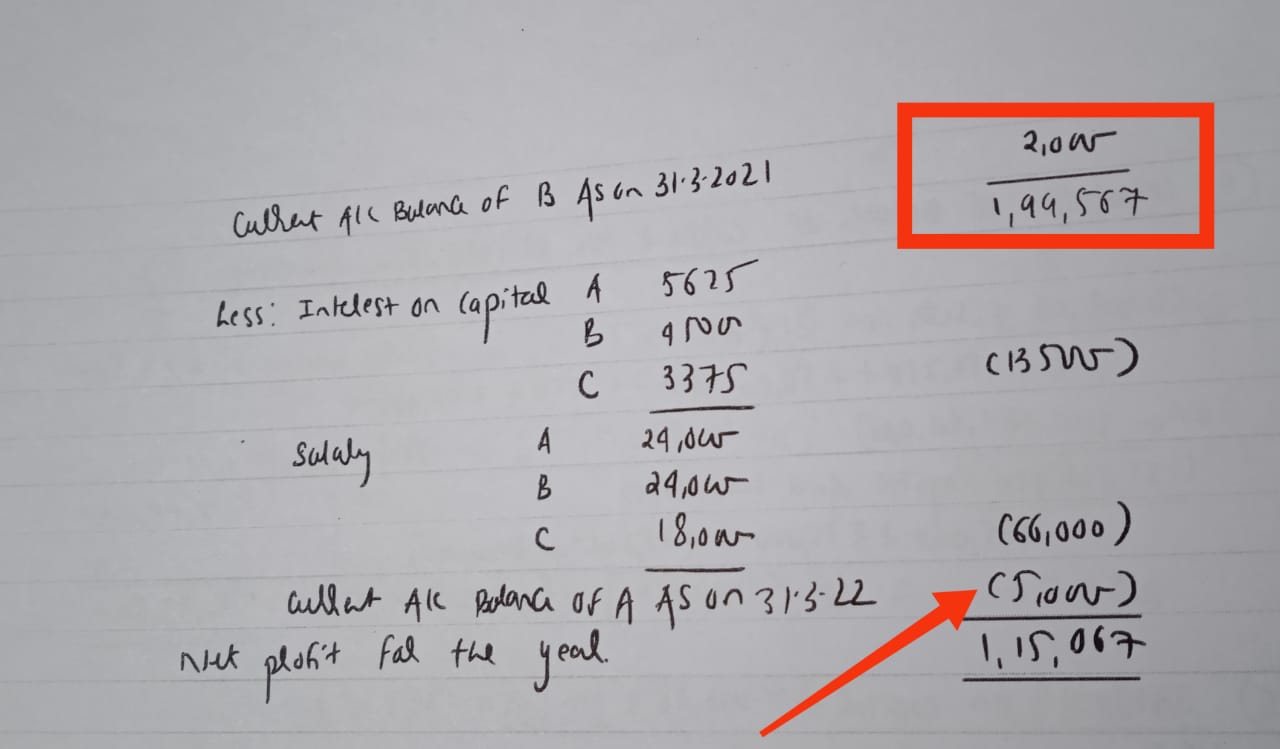 2,000
Current A/c Balance of B As on 31.3.2021 1,99,567
Less: Interest on Capital A 5625
B 4500
C 3375 (13500)
Salary A 24,000
B 24,000
C 18,000 (66,000)
Current A/c Balance of A As on 31.3.22 (5,000)
Net profit for the year. 1,15,067